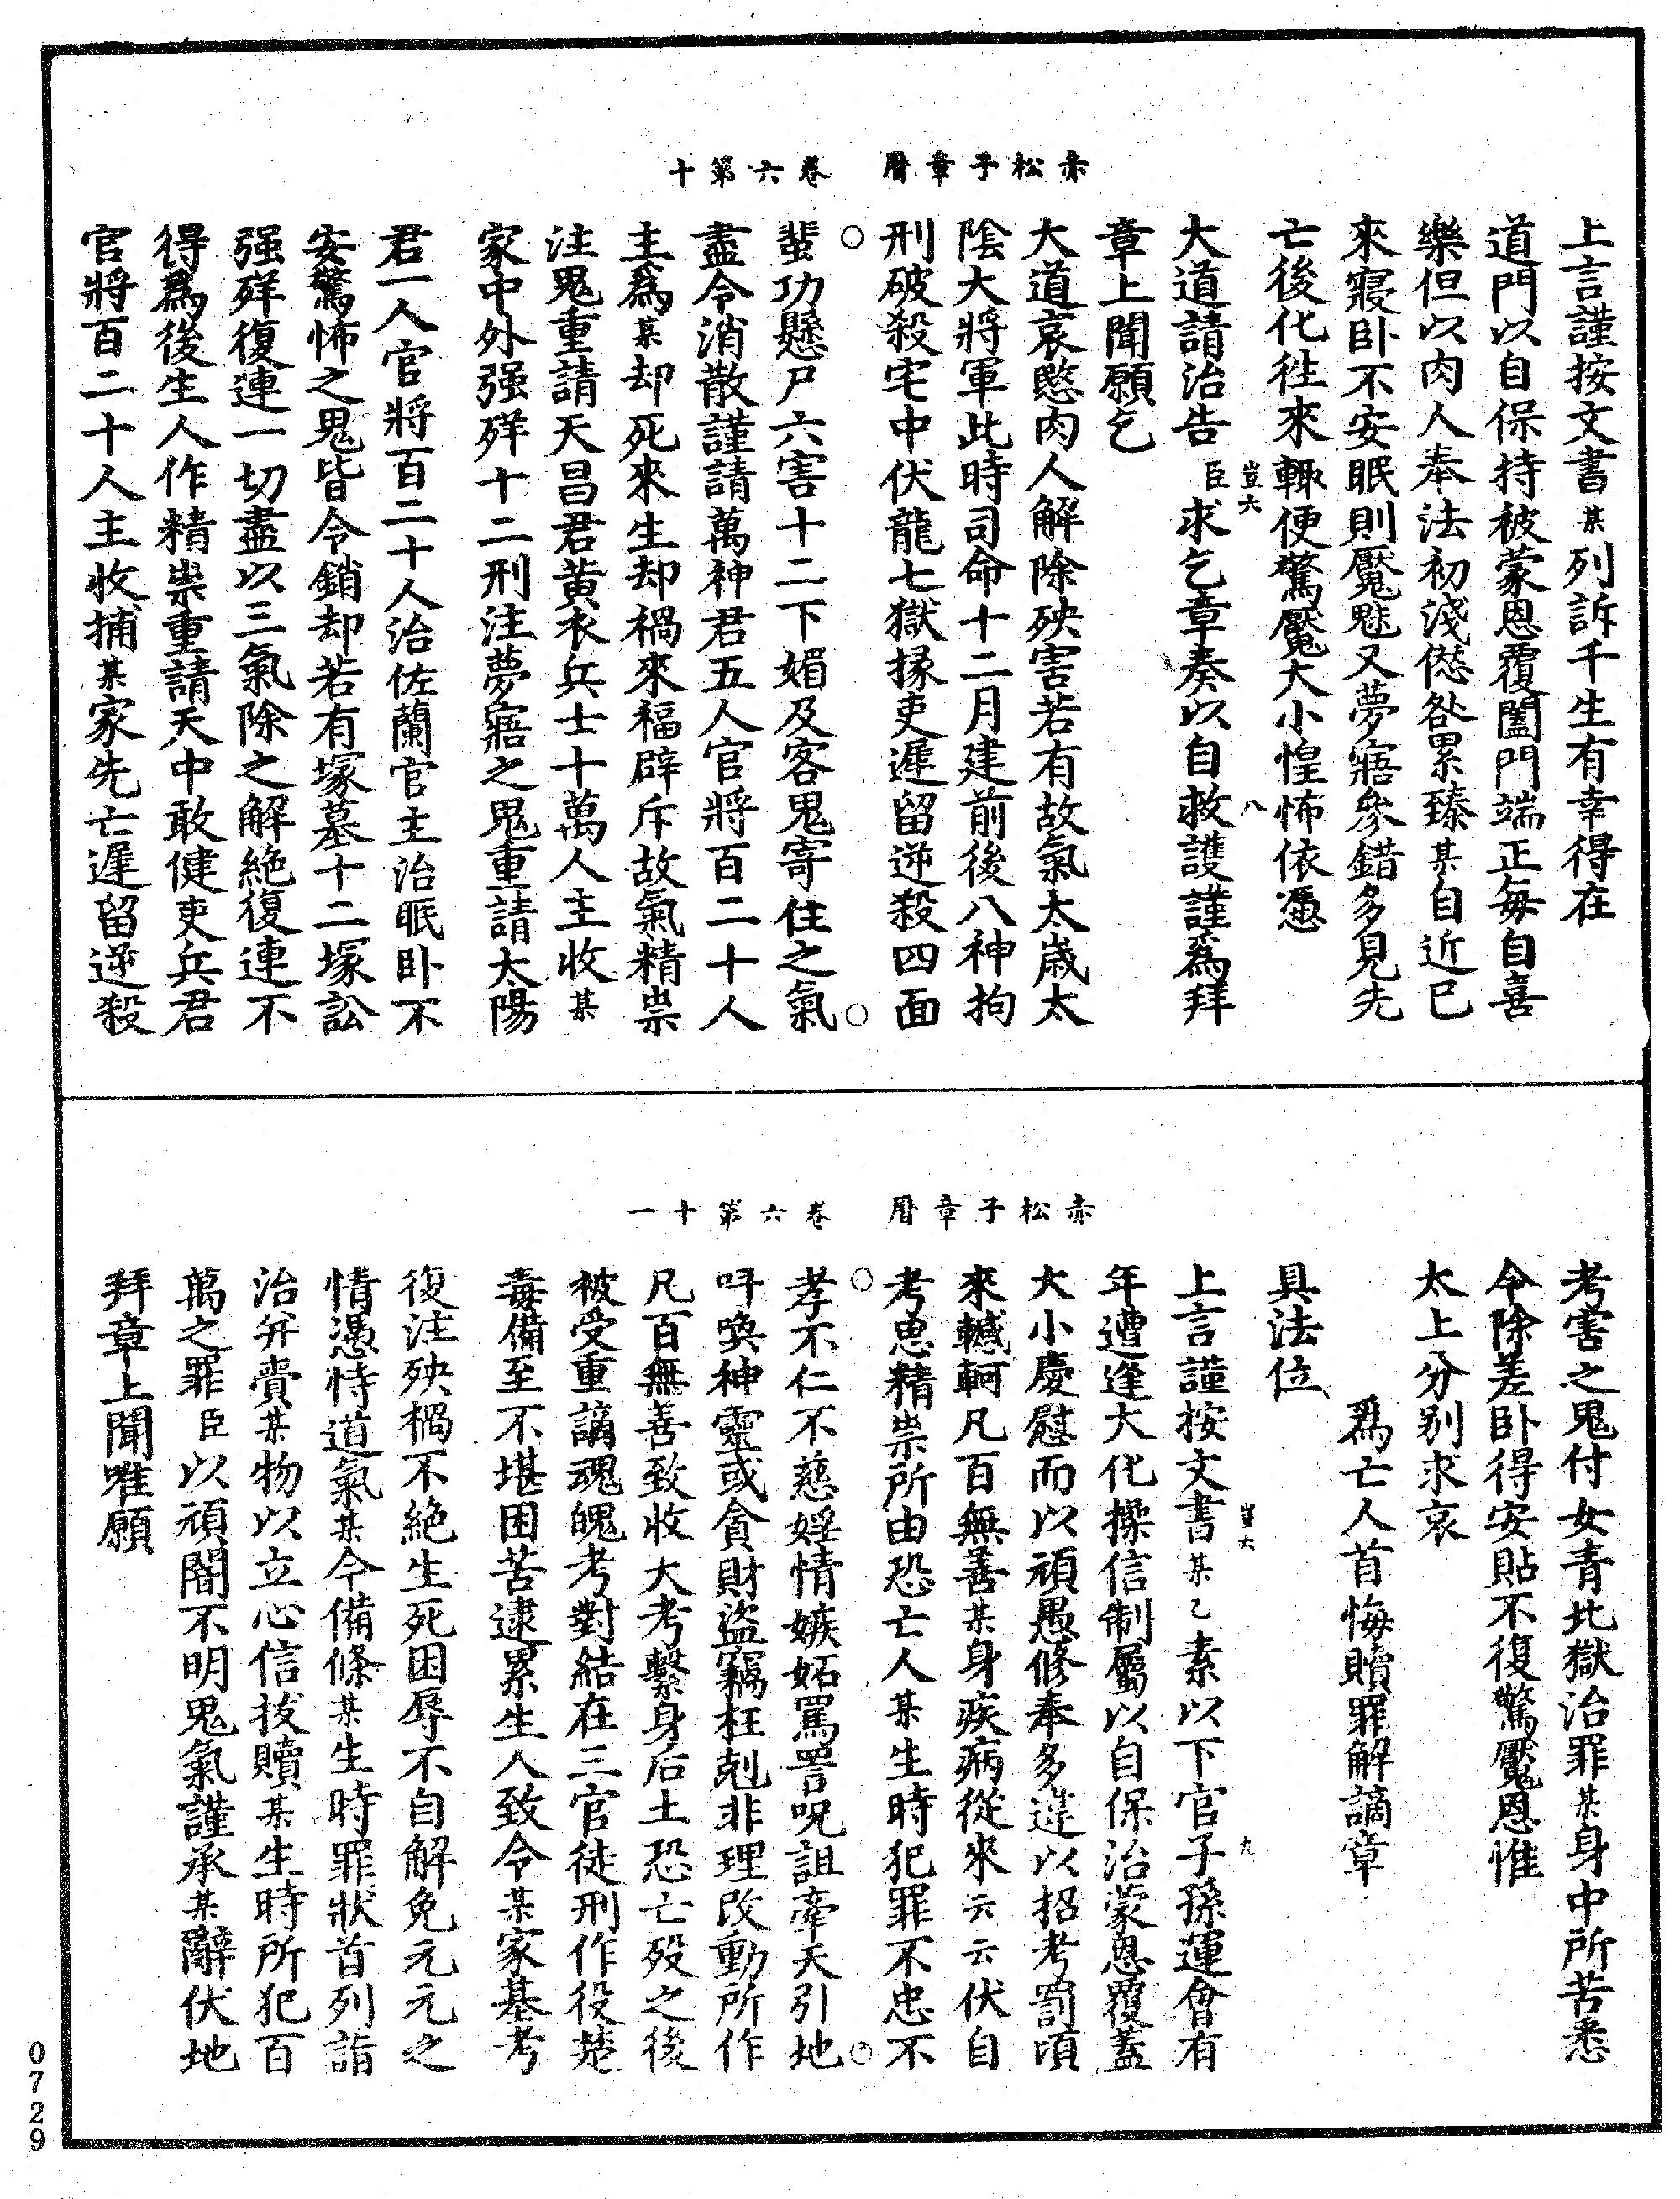 赤松子章曆　卷六第十
上言謹按文書某列訴千生有幸得在
道門以自保持被蒙恩覆闔門端正每自喜
樂但以肉人奉法初淺愆咎累臻某自近已
來寢卧不安眠則魘魅又夢寤參錯多見先
亡後化往來輙便驚魘大小惶怖依憑
豈六　八
大道請治告臣求乞章奏以自救護謹爲拜
章上聞願乞
大道哀愍肉人解除殃害若有故氣太歲太
陰大將軍此時司命十二月建前後八神拘
刑破殺宅中伏龍七獄掾吏遲留逆殺四面
蜚功懸尸六害十二下媚及客鬼寄住之氣
盡令消散謹請萬神君五人官將百二十人
主爲某却死來生却禍來福辟斥故氣精祟
注鬼重請天昌君黃衣兵士十萬人主收某
家中外强殍十二刑注夢寤之鬼重請太陽
君一人官將百二十人治佐蘭官主治眠卧不
安驚怖之鬼皆令銷却若有塚墓十二塚訟
强殍復連一切盡以三氣除之解絶復連不
得爲後生人作精祟重請天中敢健吏兵君
官將百二十人主收捕某家先亡遲留逆殺
赤松子章曆　卷六第十一
考害之鬼付女青北獄治罪某身中所苦悉
令除差卧得安貼不復驚魘恩惟
太上分別求哀
爲亡人首悔贖罪解謫章
具法位
豈六　九
上言謹按文書某乙素以下官子孫運會有
年遭逢大化操信制屬以自保治蒙恩覆蓋
大小慶慰而以頑愚修奉多違以招考罰頃
來轗軻凡百無善某身疾病從來云云伏自
考思精祟所由恐亡人某生時犯罪不忠不
孝不仁不慈婬情嫉妬罵詈呪詛牽天引地
呌喚神靈或貪財盜竊枉剋非理改動所作
凡百無善致收大考繫身后土恐亡歿之後
被受重謫魂魄考對結在三官徒刑作役楚
毒備至不堪困苦逮累生人致令某家墓考
復注殃禍不絶生死困辱不自解免元元之
情憑恃道氣某今備條某生時罪狀首列詣
治并賫某物以立心信拔贖某生時所犯百
萬之罪臣以頑闇不明鬼氣謹承某辭伏地
拜章上聞唯願
0729